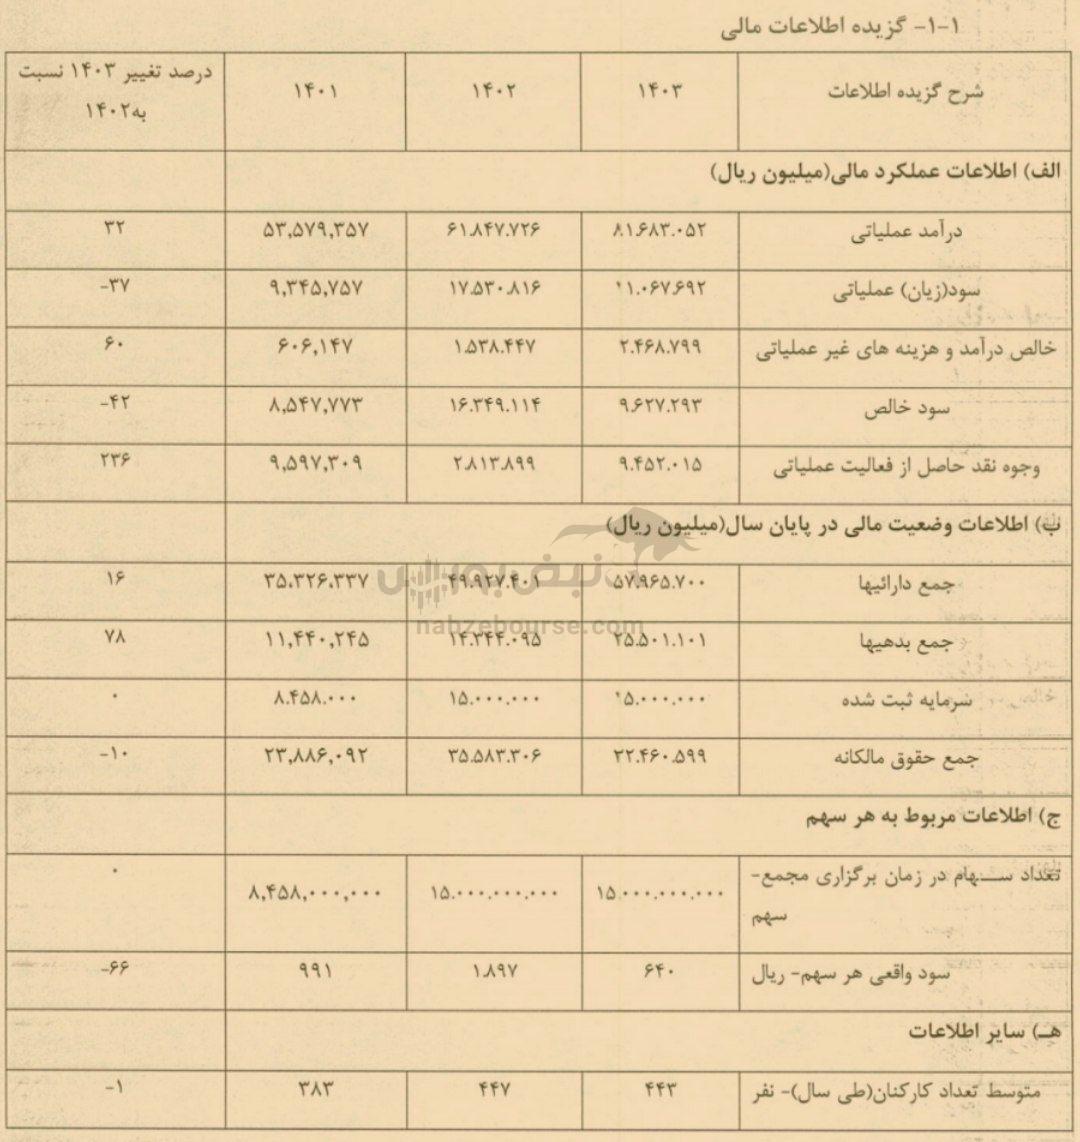 ۱-۱- گزیده اطلاعات مالی
شرح گزیده اطلاعات ۱۴۰۳ ۱۴۰۲ ۱۴۰۱ درصد تغییر ۱۴۰۳ نسبت
به۱۴۰۲
الف) اطلاعات عملکرد مالی(میلیون ریال)
درآمد عملیاتی ۸۱.۶۸۳.۰۵۲ ۶۱.۸۴۷.۷۲۶ ۵۳,۵۷۹,۳۵۷ ۳۲
سود(زیان) عملیاتی ۱۱.۰۶۷.۶۹۲ ۱۷.۵۳۰.۸۱۶ ۹,۳۴۵,۷۵۷ -۳۷
خالص درآمد و هزینه های غیر عملیاتی ۲.۴۶۸.۷۹۹ ۱.۵۳۸.۴۴۷ ۶۰۶,۱۴۷ ۶۰
سود خالص ۹.۶۲۷.۲۹۳ ۱۶.۳۴۹.۱۱۴ ۸,۵۴۷,۷۷۳ -۴۲
وجوه نقد حاصل از فعالیت عملیاتی ۹.۴۵۲.۰۱۵ ۲.۸۱۳.۸۹۹ ۹,۵۹۷,۳۰۹ ۲۳۶
ب) اطلاعات وضعیت مالی در پایان سال(میلیون ریال)
جمع دارائیها ۵۷.۹۶۵.۷۰۰ ۴۹.۹۲۷.۴۰۱ ۳۵,۳۲۶,۳۳۷ ۱۶
نبض بورس
nabzebourse.com
جمع بدهیها ۲۵.۵۰۱.۱۰۱ ۱۴.۳۴۴.۰۹۵ ۱۱,۴۴۰,۲۴۵ ۷۸
سرمایه ثبت شده ۱۵.۰۰۰.۰۰۰ ۱۵.۰۰۰.۰۰۰ ۸.۴۵۸.۰۰۰ ۰
جمع حقوق مالکانه ۲۲.۴۶۰.۵۹۹ ۳۵.۵۸۳.۳۰۶ ۲۳,۸۸۶,۰۹۲ -۱۰
ج) اطلاعات مربوط به هر سهم
تعداد سهام در زمان برگزاری مجمع- ۱۵.۰۰۰.۰۰۰.۰۰۰ ۱۵.۰۰۰.۰۰۰.۰۰۰ ۸,۴۵۸,۰۰۰,۰۰۰ ۰
سهم
سود واقعی هر سهم- ریال ۶۴۰ ۱.۸۹۷ ۹۹۱ -۶۶
هـ) سایر اطلاعات
متوسط تعداد کارکنان(طی سال)- نفر ۴۴۳ ۴۴۷ ۳۸۳ -۱